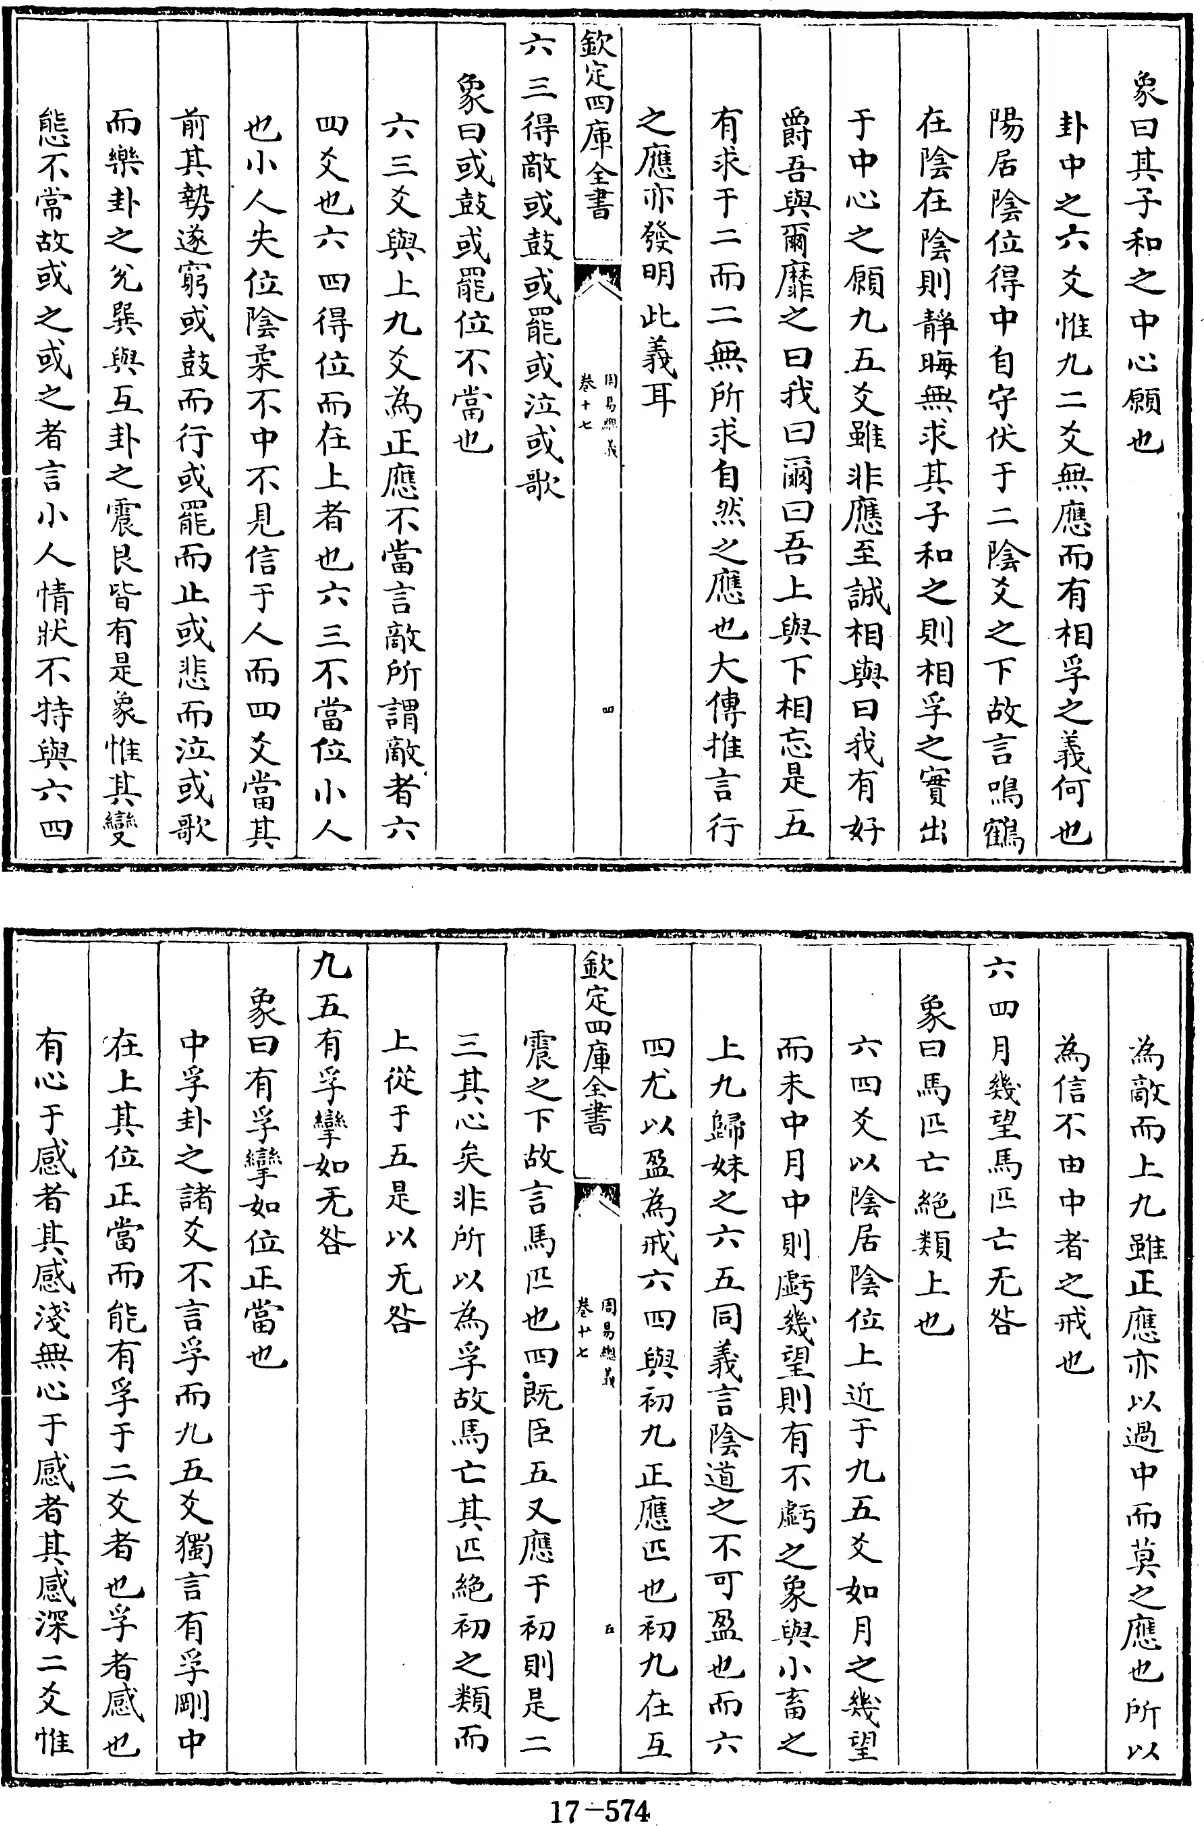 象曰其子和之中心願也
卦中之六爻惟九二爻無應而有相孚之義何也
陽居陰位得中自守伏于二陰爻之下故言鳴鶴
在陰在陰則靜晦無求其子和之則相孚之實出
于中心之願九五爻雖非應至誠相與曰我有好
爵吾與爾靡之曰我曰爾曰吾上與下相忘是五
有求于二而二無所求自然之應也大傳推言行
之應亦發明此義耳
欽定四庫全書
周易總義
卷十七
四
六三得敵或鼓或罷或泣或歌
象曰或鼓或罷位不當也
六三爻與上九爻為正應不當言敵所謂敵者六
四爻也六四得位而在上者也六三不當位小人
也小人失位陰柔不中不見信于人而四爻當其
前其勢遂窮或鼓而行或罷而止或悲而泣或歌
而樂卦之兊巽與互卦之震艮皆有是象惟其變
態不常故或之或之者言小人情狀不特與六四
為敵而上九雖正應亦以過中而莫之應也所以
為信不由中者之戒也
六四月幾望馬匹亡无咎
象曰馬匹亡絕類上也
六四爻以陰居陰位上近于九五爻如月之幾望
而未中月中則虧幾望則有不虧之象與小畜之
上九歸妹之六五同義言陰道之不可盈也而六
四尤以盈為戒六四與初九正應匹也初九在互
欽定四庫全書
周易總義
卷十七
五
震之下故言馬匹也四既臣五又應于初則是二
三其心矣非所以為孚故馬亡其匹絕初之類而
上從于五是以无咎
九五有孚攣如无咎
象曰有孚攣如位正當也
中孚卦之諸爻不言孚而九五爻獨言有孚剛中
在上其位正當而能有孚于二爻者也孚者感也
有心于感者其感淺無心于感者其感深二爻惟
17-574